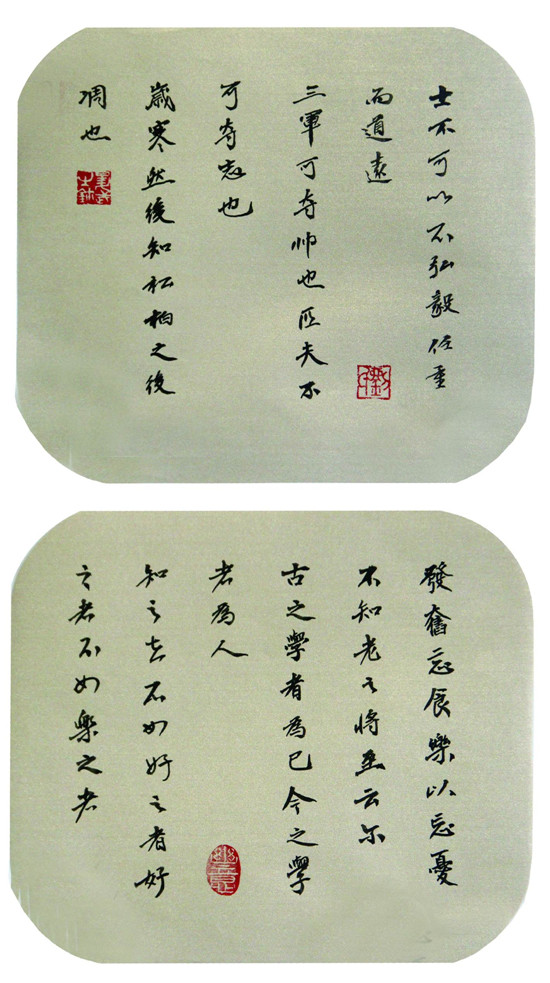 士不可以不弘毅任重
而道遠
三軍可夺帅也匹夫不
可夺志也
歲寒然後知松柏之後
凋也
發奮忘食樂以忘憂
不知老之將至云尔
古之學者為己今之學
者為人
知之者不如好之者好
之者不如樂之者